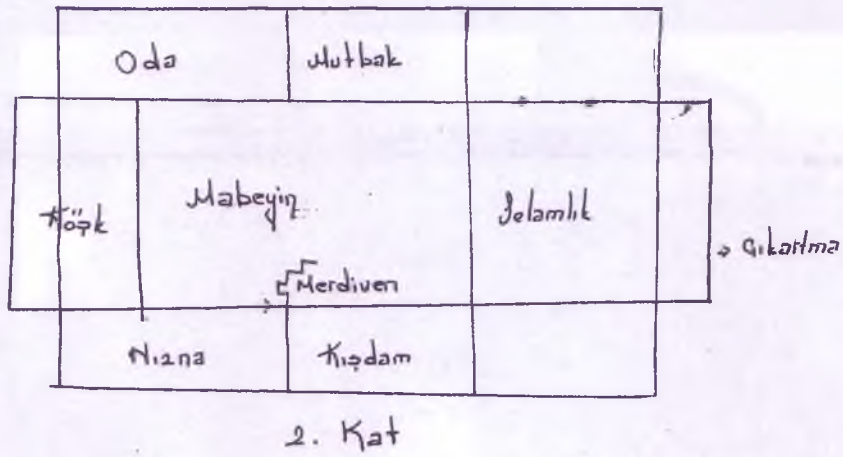 Oda
Mutbak
Köşk
Mabeyin
Selamlık
Çıkartma
Merdiven
Hızna
Kışdam
2. Kat